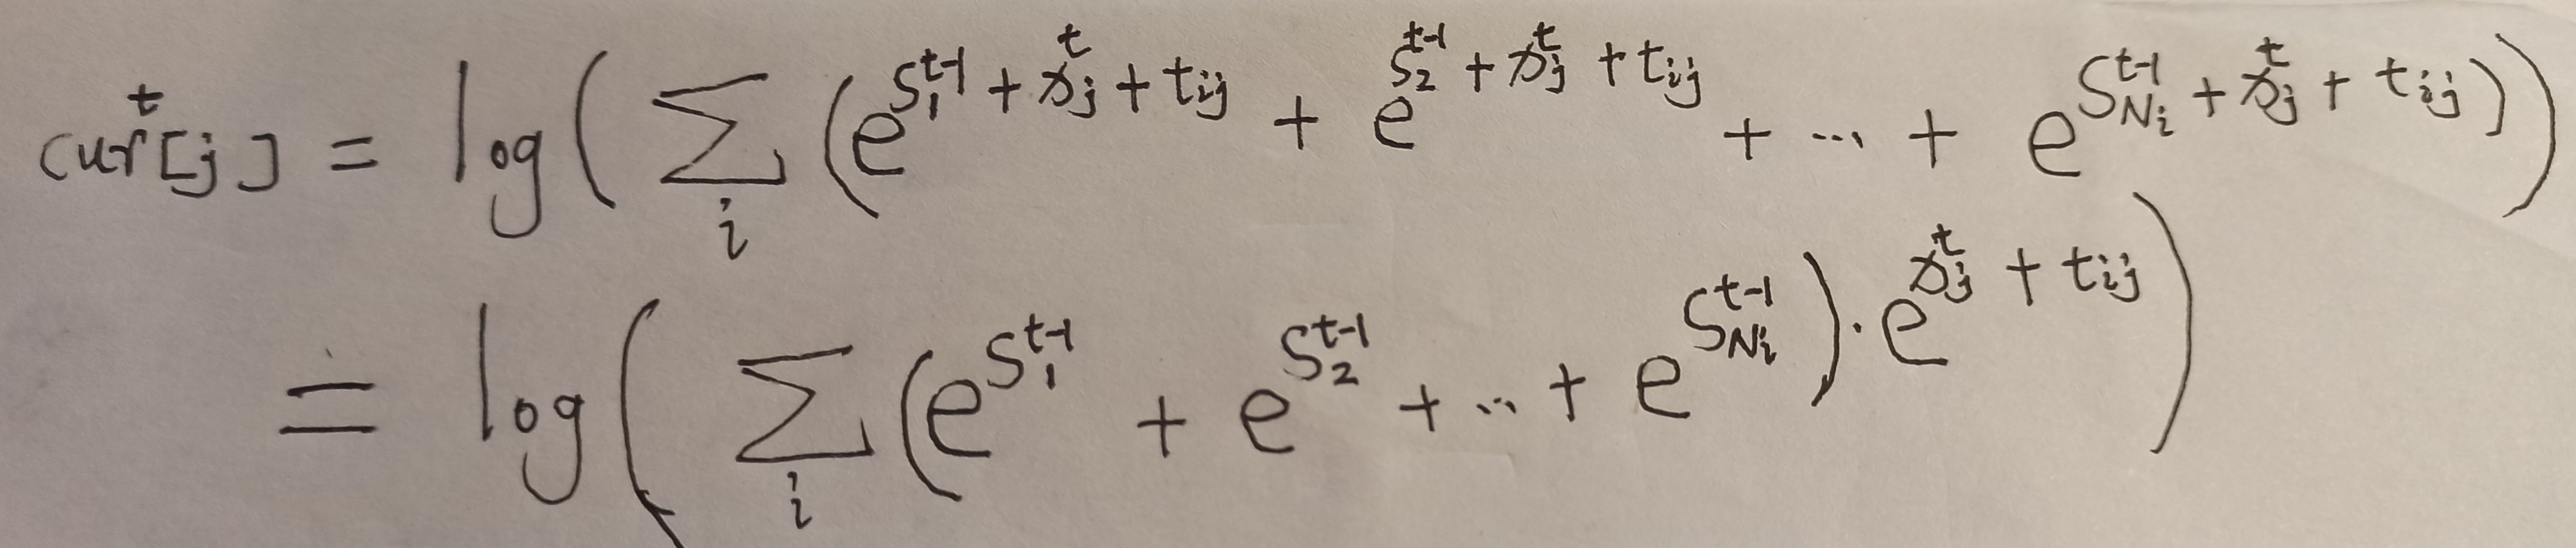 cur^t[j] = log( ∑_i (e^{S_1^{t-1} + x_j^t + t_{ij}} + e^{S_2^{t-1} + x_j^t + t_{ij}} + ... + e^{S_{N_i}^{t-1} + x_j^t + t_{ij}}))
= log( ∑_i (e^{S_1^{t-1}} + e^{S_2^{t-1}} + ... + e^{S_{N_i}^{t-1}}) · e^{x_j^t + t_{ij}})